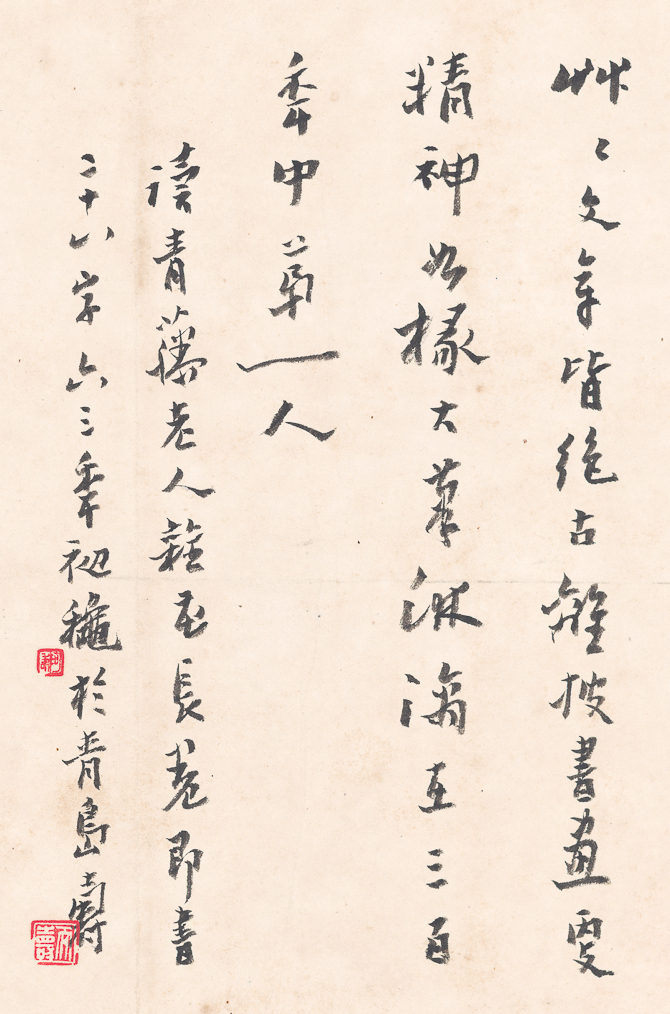 艸〻文章皆絶古離披書畫更
精神如椽大筆淋漓在三百
年中第一人
讀青藤老人雜花長卷即書
二十八字六三年初穐於青島壽